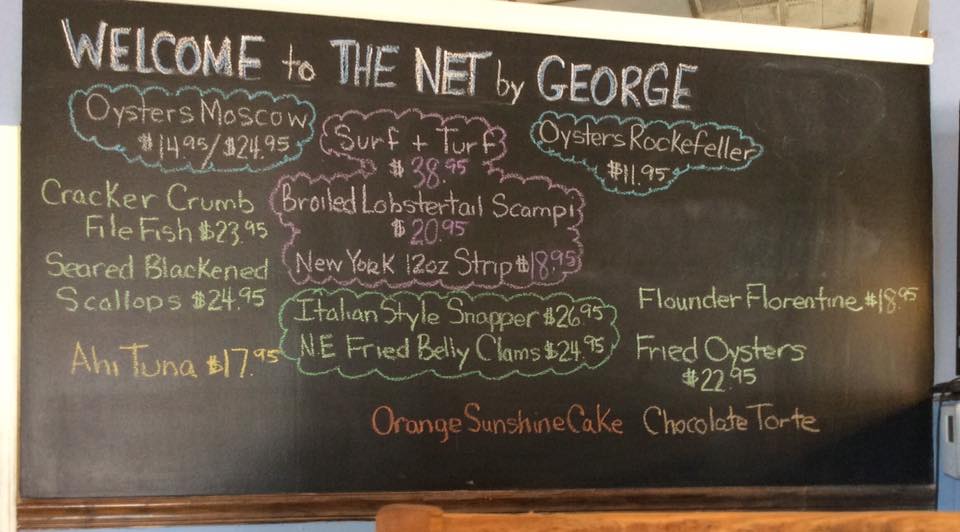 WELCOME to THE NET by GEORGE
Oysters Moscow
$14.95/$24.95
Surf + Turf
$38.95
Oysters Rockefeller
$11.95
Cracker Crumb
File Fish $23.95
Broiled Lobstertail Scampi
$20.95
New York 12oz Strip $18.95
Seared Blackened
Scallops $24.95
Italian Style Snapper $26.95
N.E Fried Belly Clams $24.95
Flounder Florentine $18.95
Ahi Tuna $17.95
Fried Oysters
$22.95
Orange Sunshine Cake
Chocolate Torte